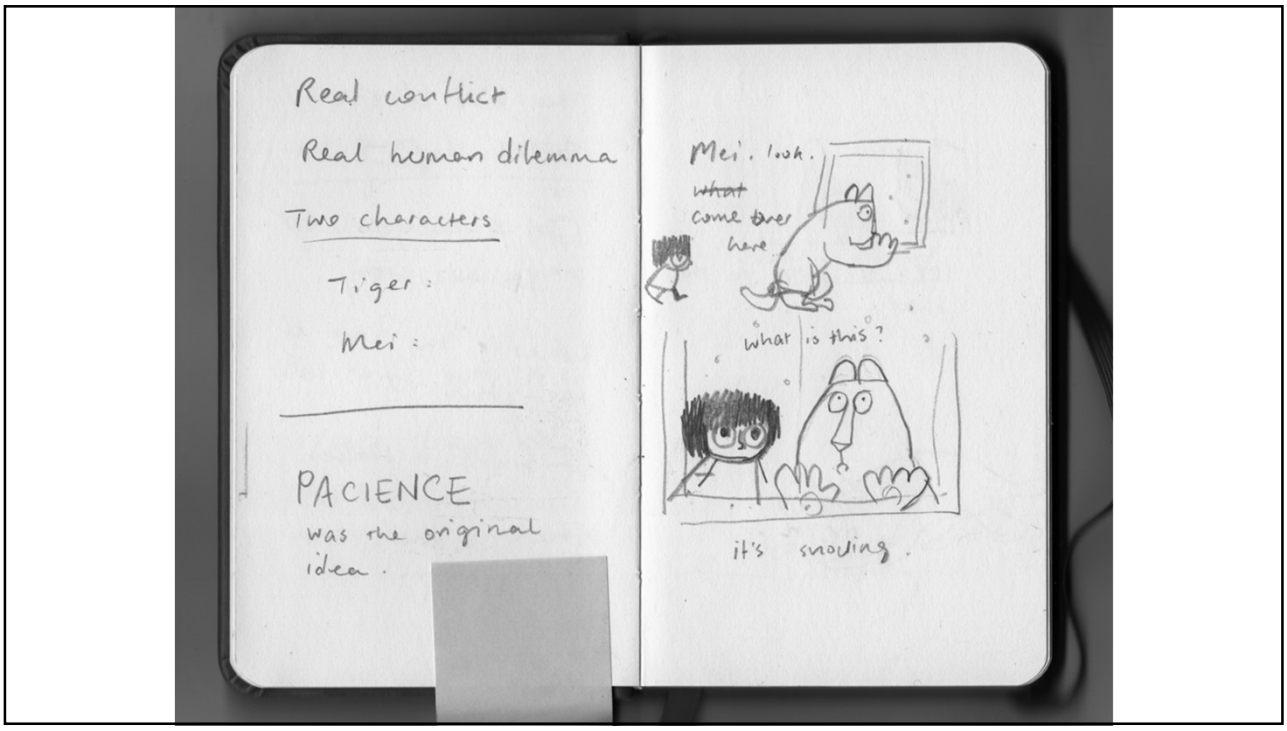 Real conflict
Real human dilemma
Two characters
Tiger :
Mei :
PACIENCE
was the original
idea.
Mei. look.
what
come over
here
what is this?
it's snowing.